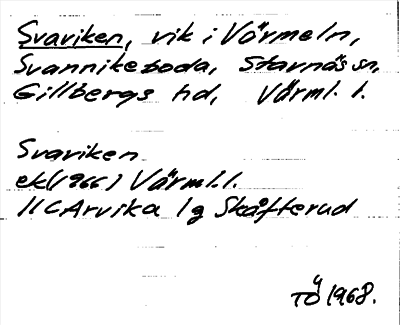 Svaviken, vik i Värmeln,
Svannikeboda, Stavnäs sn,
Gillbergs hd, Värml. l.
Svaviken
ek (1966) Värml. l.
11C Arvika 1g Skåfterud
TÖ 1968.